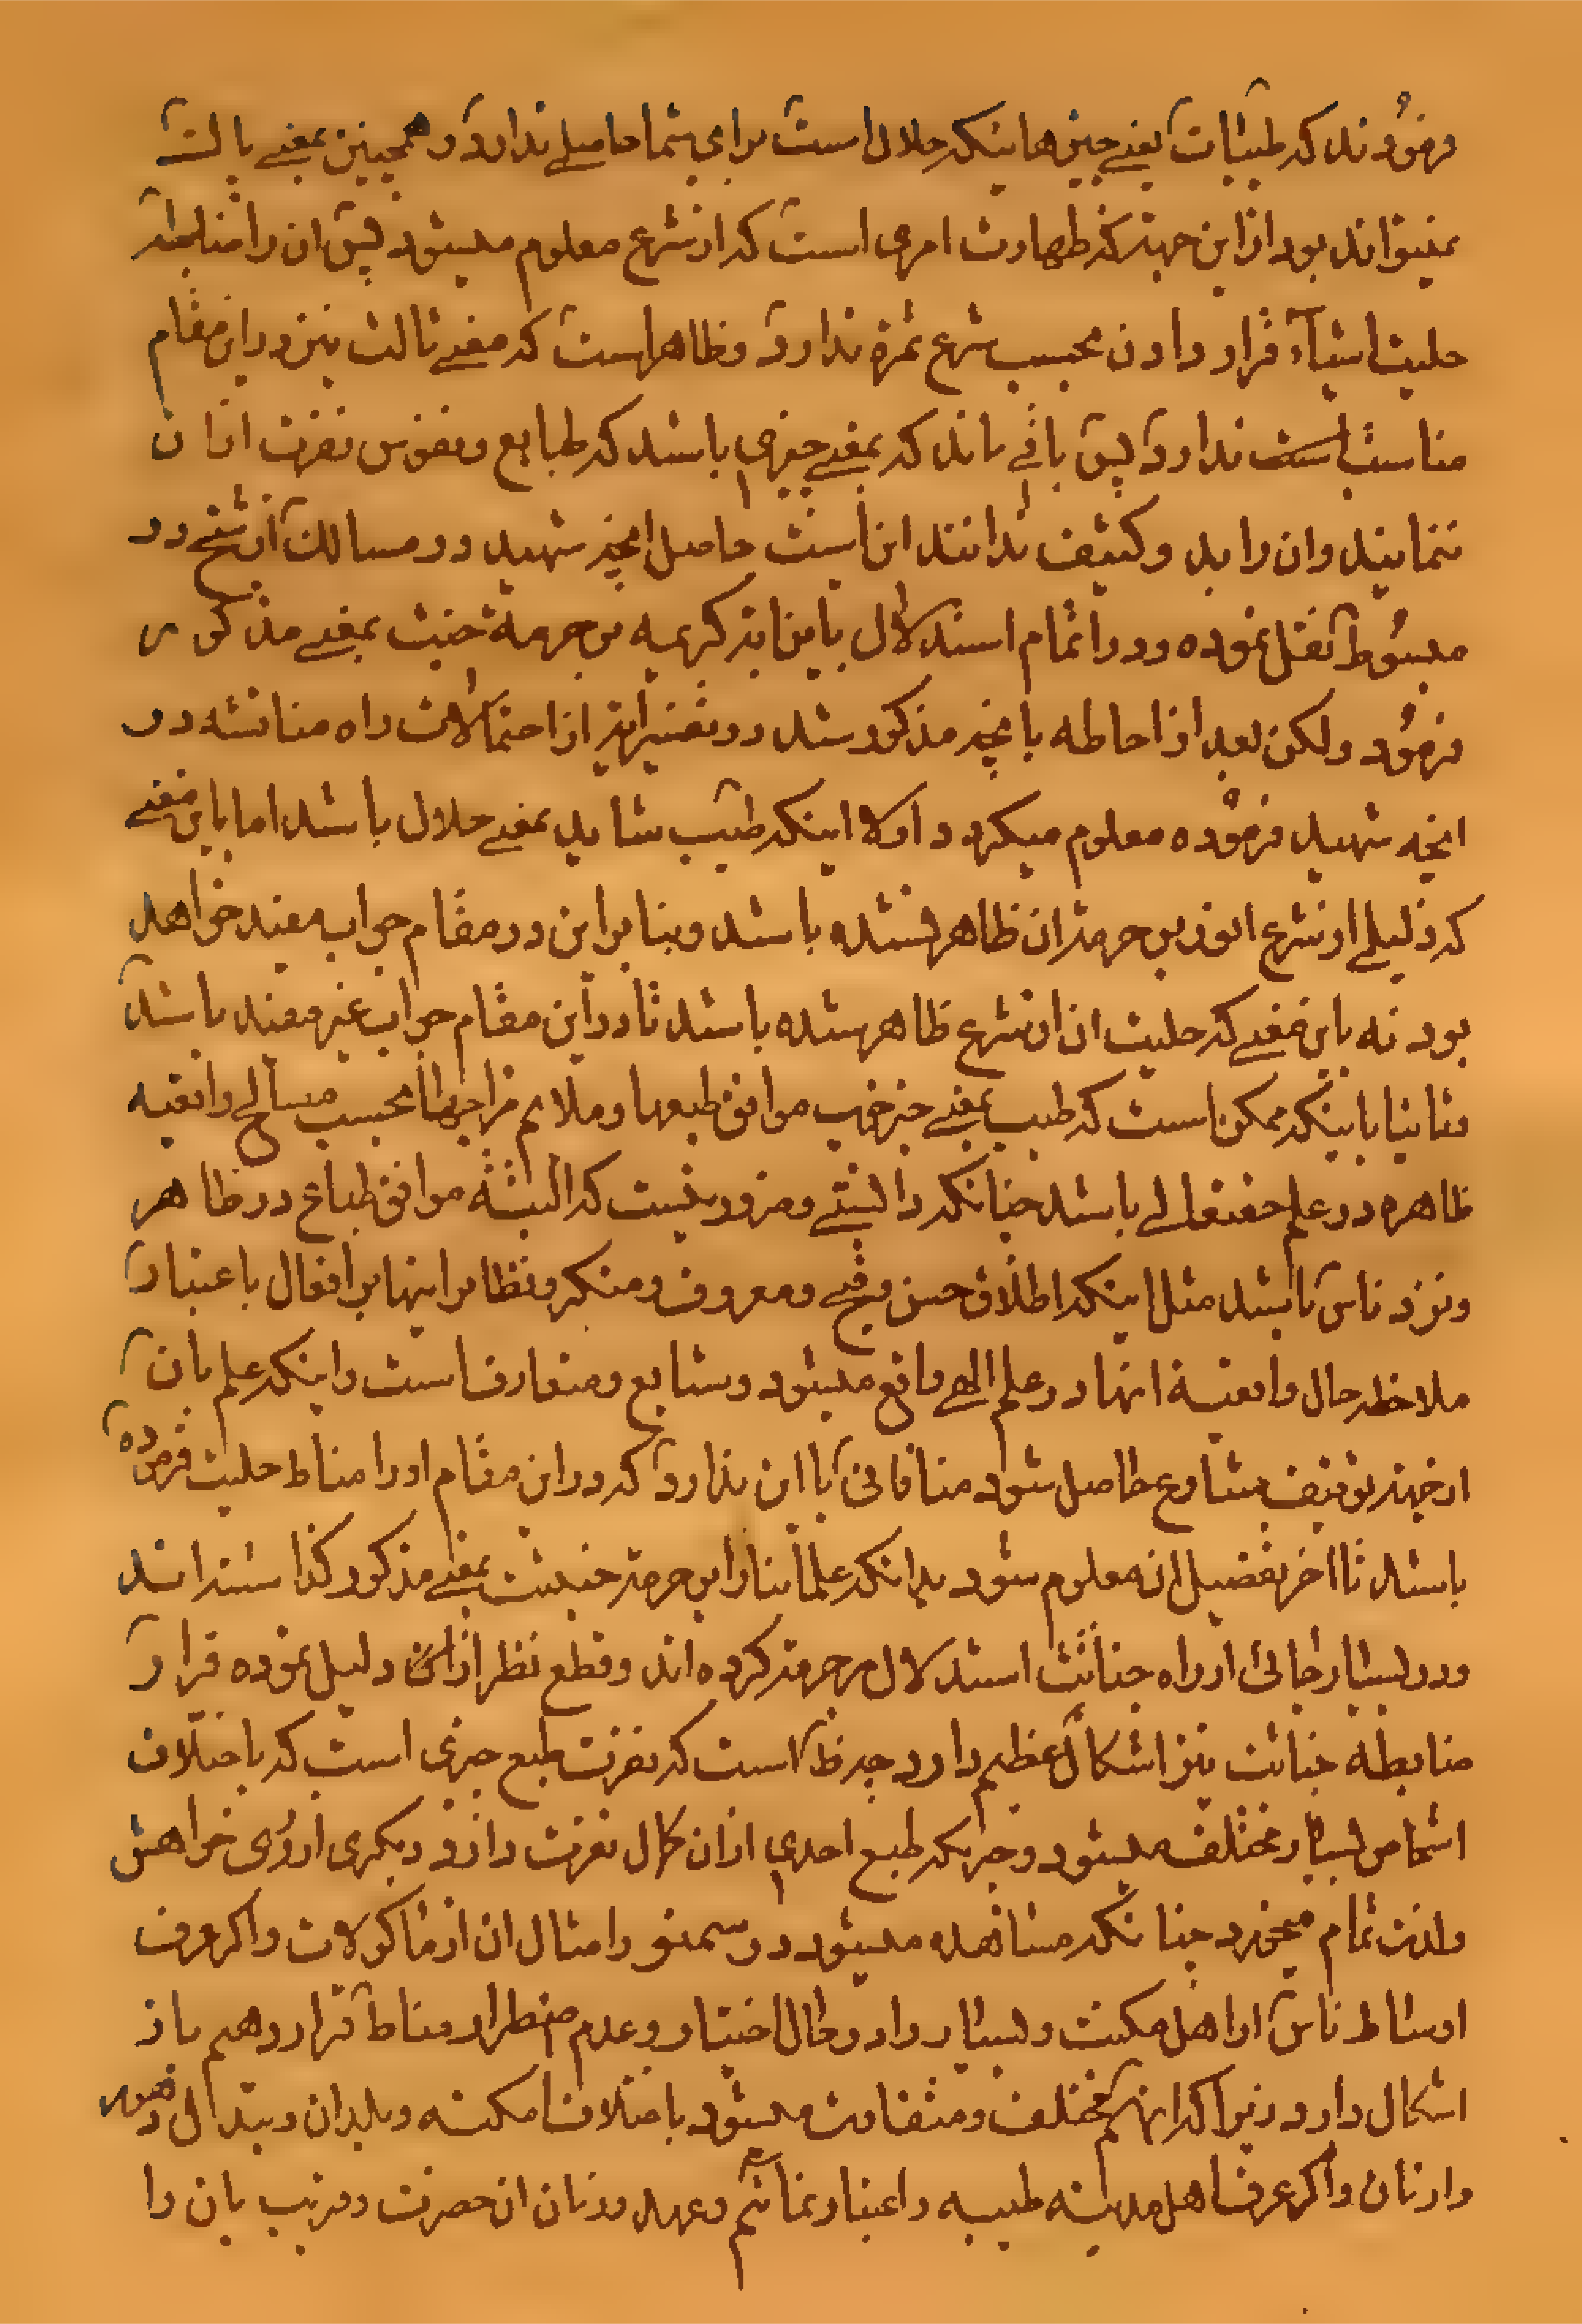 فرمودند که طیبات یعنی چیزهاییکه حلال است برای شما حاصلی ندارد و همچنین بمعنی ثالث
نمیتواند بود از این جهته که طهارت امری است که از شرع معلوم میشود پس ان را ضابطه
حلیت اشیاء قرار دادن بحسب شرع ثمره ندارد و ظاهر است که معنی ثالث نیز در این مقام
مناسب است ندارد پس باقی ماند که بمعنی چیزی باشد که طبایع و نفوس نفرت از ان
ننمایند و ان را بد و کثیف ندانند این است حاصل انچه شهید در مسالک از شیخ در
مبسوط نقل نموده و در اتمام استدلال باین ایه کریمه بر حرمة خبیث بمعنی مذکور
فرمود و لکن بعد از احاطه بانچه مذکور شد در تفسیر ایه از احتمالات راه مناقشه در
انچه شهید فرموده معلوم میکردد اولا اینکه طیب شاید بمعنی حلال باشد اما باین معنی
که دلیلی از شرع انور بر حرمة ان ظاهر نشده باشد و بنا بر این در مقام جواب مفید خواهد
بود نه باین معنی که حلیت ان از شرع ظاهر شده باشد تا در این مقام جواب غیر مفید باشد
و ثانیا باینکه ممکن است که طیب بمعنی چیز خوب موافق طبعها و ملایم مزاجها بحسب مصالح واقعیه
ظاهره در علم حقتعالی باشد چنانکه دانستی و ضرور نیست که البته موافق طباع در ظاهر
و نزد ناس باشد مثل اینکه اطلاق حسن و قبح و معروف و منکر و نظایر اینها بر افعال باعتبار
ملاحظه حال واقعیة انها در علم الهی واقع میشود و شایع و متعارف است و اینکه علم بان
از جهة توقیف شارع حاصل شود منافاتی با این ندارد که در این مقام او را مناط حلیت فرموده
باشد تا اخر تفصیل انه معلوم شود بدانکه علما بنا را بر حرمة خبیث بمعنی مذکور کذاشته اند
و در بسیار جائی از راه خباثت استدلال بر حرمة کرده اند و قطع نظر از ان دلیل نموده قرار
ضابطه خباثت نیز اشکال عظیم دارد چه ظ است که نفرت طبع چیزی است که باختلاف
اشخاص بسیار مختلف میشود و چیزیکه طبع احدی از ان کمال نفرت دارد و دیکری از روی خواهش
ولذت تمام میخورد چنانکه مشاهده میشود در سمنو و امثال ان از ماکولات و اکر عرف
اوساط ناس از اهل مکنت و بسیار را در حال اختیار و عدم اضطرار مناط قرار دهیم باز
اشکال دارد زیرا که انهم مختلف و متفاوت میشود باختلاف امکنه و بلدان و تبدل دهور
و ازمان و اکر عرف اهل مدینه طیبه را اعتبار نمائیم و عهد و زمان ان حضرت و قریب بان را